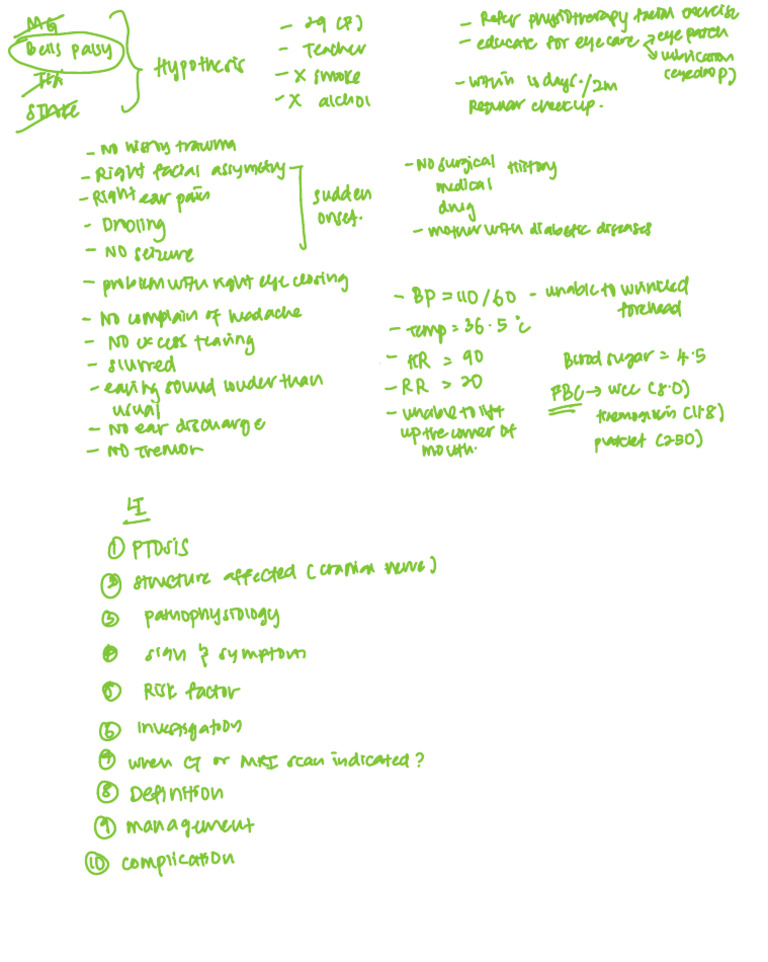 MG
Bells palsy
TIA
STROKE
Hypothesis
- 29 (F)
- Teacher
- X smoke
- X alchol
- Refer physiotherapy facial exercise
- educate for eye care → eye patch
→ lubrication
(eyedrop)
- within 10 days / 2m
Regular checkup.
- NO history trauma
- Right facial assymetry
- Right ear pain
- Drooling
- NO seizure
sudden
onset.
- problem with right eye closing
- No complain of headache
- NO excess tearing
- slurred
- earing sound louder than
usual
- NO ear discharge
- NO Tremor
- NO surgical history
medical
drug
- mother with diabetic diseases
- BP = 110/60
- Temp = 36.5 °c
- HR = 90
- RR = 20
- unable to lift
up the corner of
mouth.
- unable to wrinkled
forehead
Blood sugar = 4.5
FBC → WCC (8.0)
Haemoglobin (11.8)
platelet (250)
LI
① PTOSIS
② structure affected (cranial nerve)
③ pathophysiology
④ sign & symptom
⑤ Risk factor
⑥ Investigation
⑦ when CT or MRI scan indicated?
⑧ Definition
⑨ management
⑩ complication